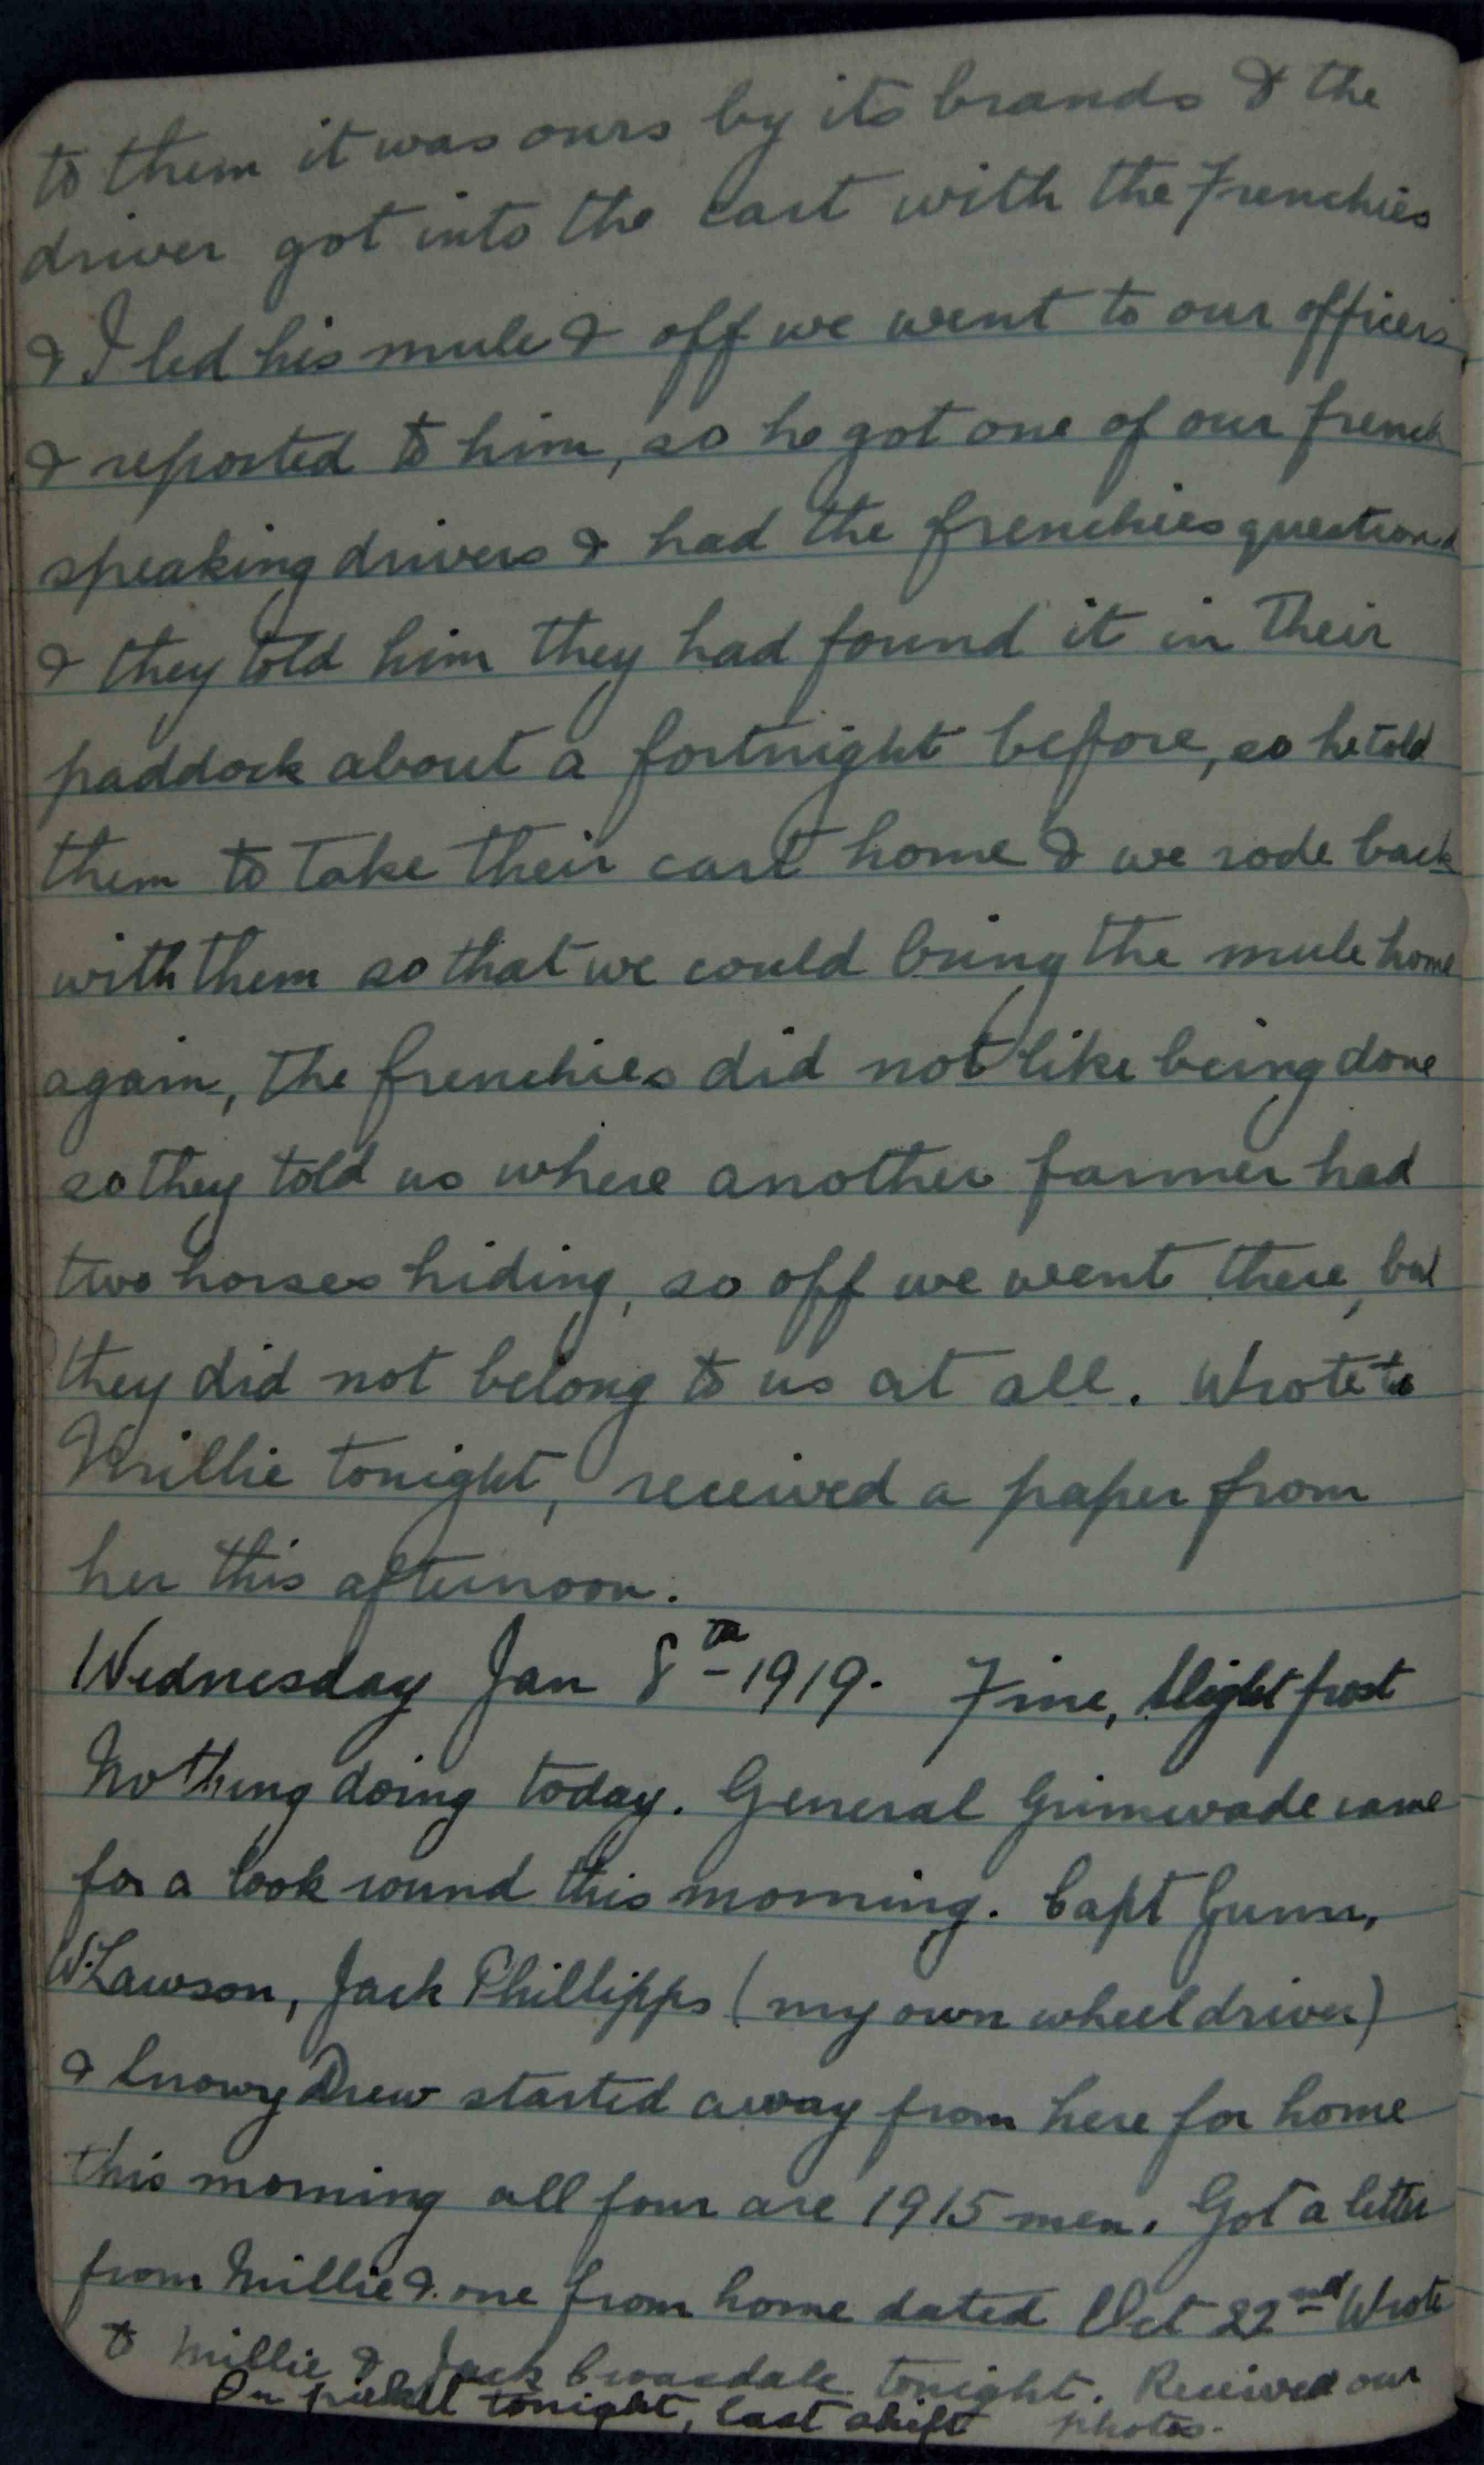 to them it was ours by its brands & the
driver got into the cart with the Frenchies
& I led his mule & off we went to our officers
& reported to him, so he got one of our french
speaking drivers & had the frenchies questioned
& they told him they had found it in their
paddock about a fortnight before, so he told
them to take their cart home & we rode back
with them so that we could bring the mule home
again, the frenchies did not like being done
so they told us where another farmer had
two horses hiding, so off we went there, but
they did not belong to us at all. Wrote to
Millie tonight, received a paper from
her this afternoon.
Wednesday Jan 8th 1919. Fine, slight frost
Nothing doing today. General Grimwade came
for a look round this morning. Capt Gunn,
W. Lawson, Jack Phillipps (my own wheel driver)
& Snowy Drew started away from here for home
this morning all four are 1915 men. Got a letter
from Millie & one from home dated Oct 22nd Wrote
to Millie & Jack tonight. Received our
photos.
On picket tonight, last shift